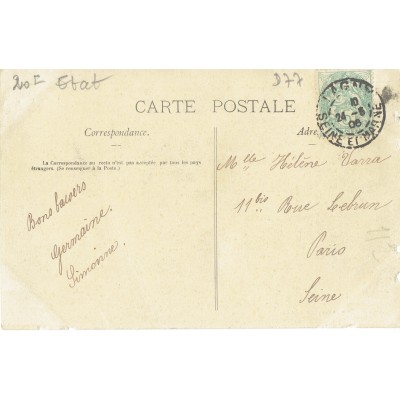 20F Etat
D77
CARTE POSTALE
LAGNY
10
24 - 6
06
SEINE ET MARNE
Correspondance.
La Correspondance au recto n'est pas acceptée par tous les pays
étrangers. (Se renseigner à la Poste.)
Adre
Bons baisers
Germaine.
Simonne.
Melle Hélène Varra
11bis Rue Lebrun
Paris
Seine